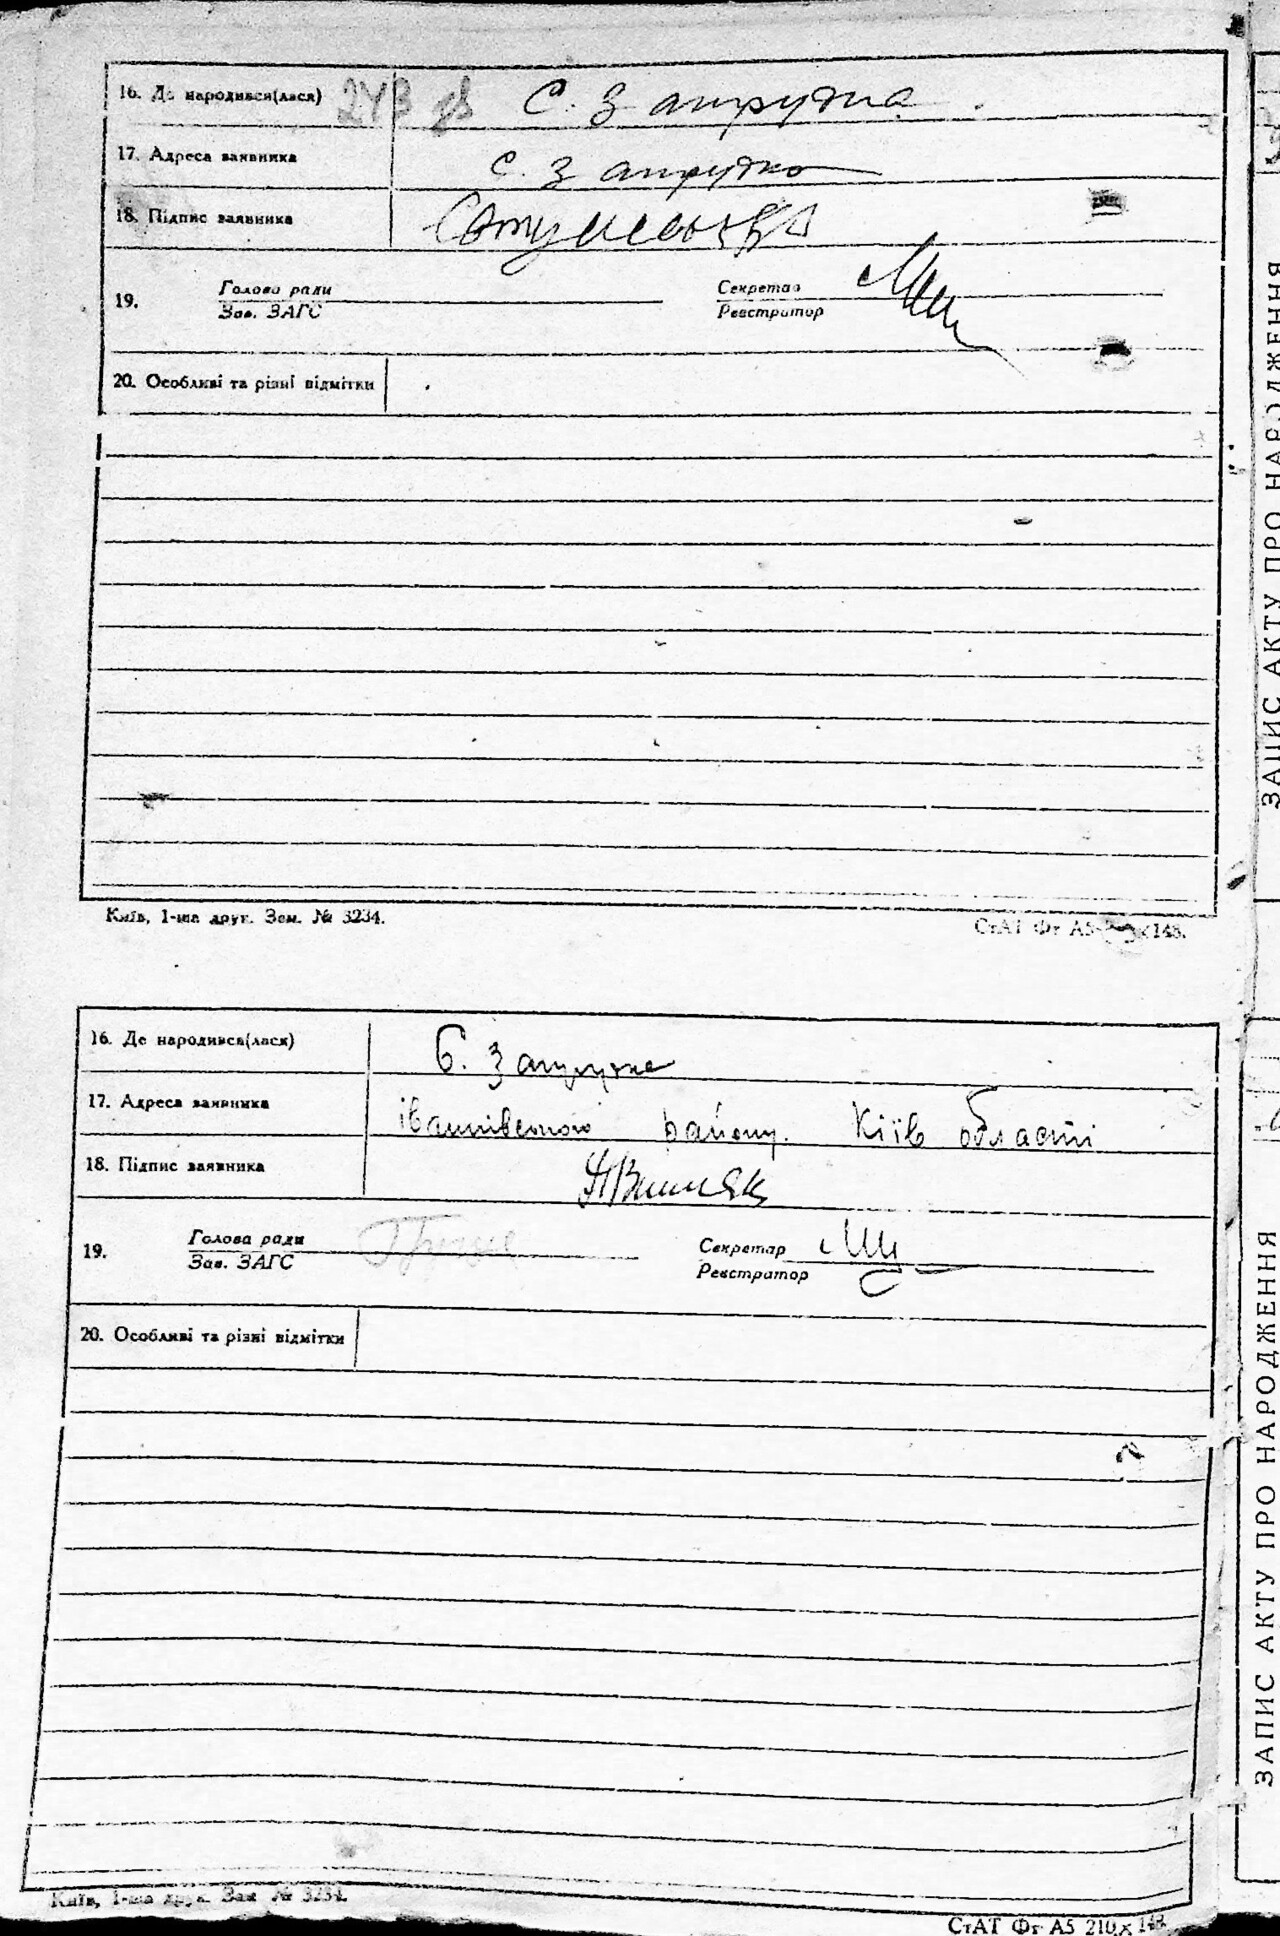 16. Де народився(лася) 243 зв с. Запрудка
17. Адреса заявника с. Запрудка
18. Підпис заявника
19. Голова ради Секретар
Зав. ЗАГС Реєстратор
20. Особливі та різні відмітки
Київ, 1-ша друк. Зам. № 3234.
СтАТ Фг А5 148.
16. Де народився(лася) С. Запрудка
17. Адреса заявника іванківського району. Київ області
18. Підпис заявника
19. Голова ради Секретар
Зав. ЗАГС Реєстратор
20. Особливі та різні відмітки
Київ, 1-ша друк. Зам. № 3234.
СтАТ Фг А5 210×148.
ЗАПИС АКТУ ПРО НАРОДЖЕННЯ
ЗАПИС АКТУ ПРО НАРОДЖЕННЯ